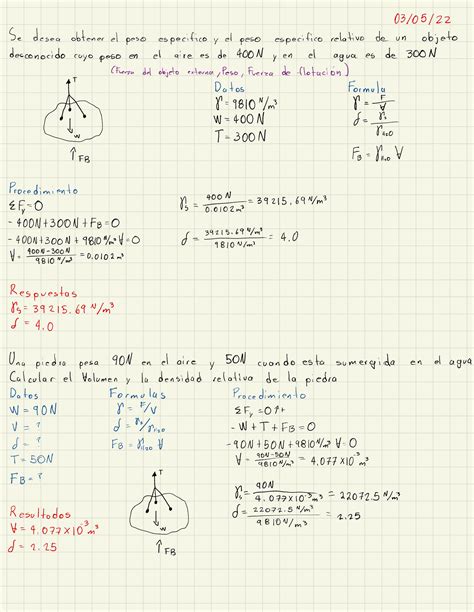 03/05/22
Se desea obtener el peso especifico y el peso especifico relativo de un objeto
desconocido cuyo peso en el aire es de 400N y en el agua es de 300N
(Fuerza del objeto externa, Peso, Fuerza de flotación)
T
W
↑FB
Datos
γ = 9810 N/m³
W = 400N
T = 300N
Formula
γ = F/V
δ = γs/γH2O
FB = γH2O V
Procedimiento
ΣFy = 0
-400N+300N+FB=0
-400N+300N + 9810 N/m³ V=0
V = 400N-300N / 9810 N/m³ = 0.0102m³
γs = 400N / 0.0102m³ = 39215.69 N/m³
δ = 39215.69 N/m³ / 9810 N/m³ = 4.0
Respuestas
γs = 39215.69 N/m³
δ = 4.0
Una piedra pesa 90N en el aire y 50N cuando esta sumergida en el agua
Calcular el Volumen y la densidad relativa de la piedra
Datos
W = 90N
V = ?
δ = ?
T = 50N
FB = ?
Formulas
γ = F/V
δ = γs/γH2O
FB = γH2O V
Procedimiento
ΣFy = 0 ↑+
-W + T + FB = 0
-90N + 50N + 9810N/m³ V = 0
V = 90N-50N / 9810 N/m³ = 4.077x10⁻³ m³
γs = 90N / 4.077x10⁻³ m³ = 22072.5 N/m³
δ = 22072.5 N/m³ / 9810 N/m³ = 2.25
T
W
↑FB
Resultados
V = 4.077x10⁻³ m³
δ = 2.25